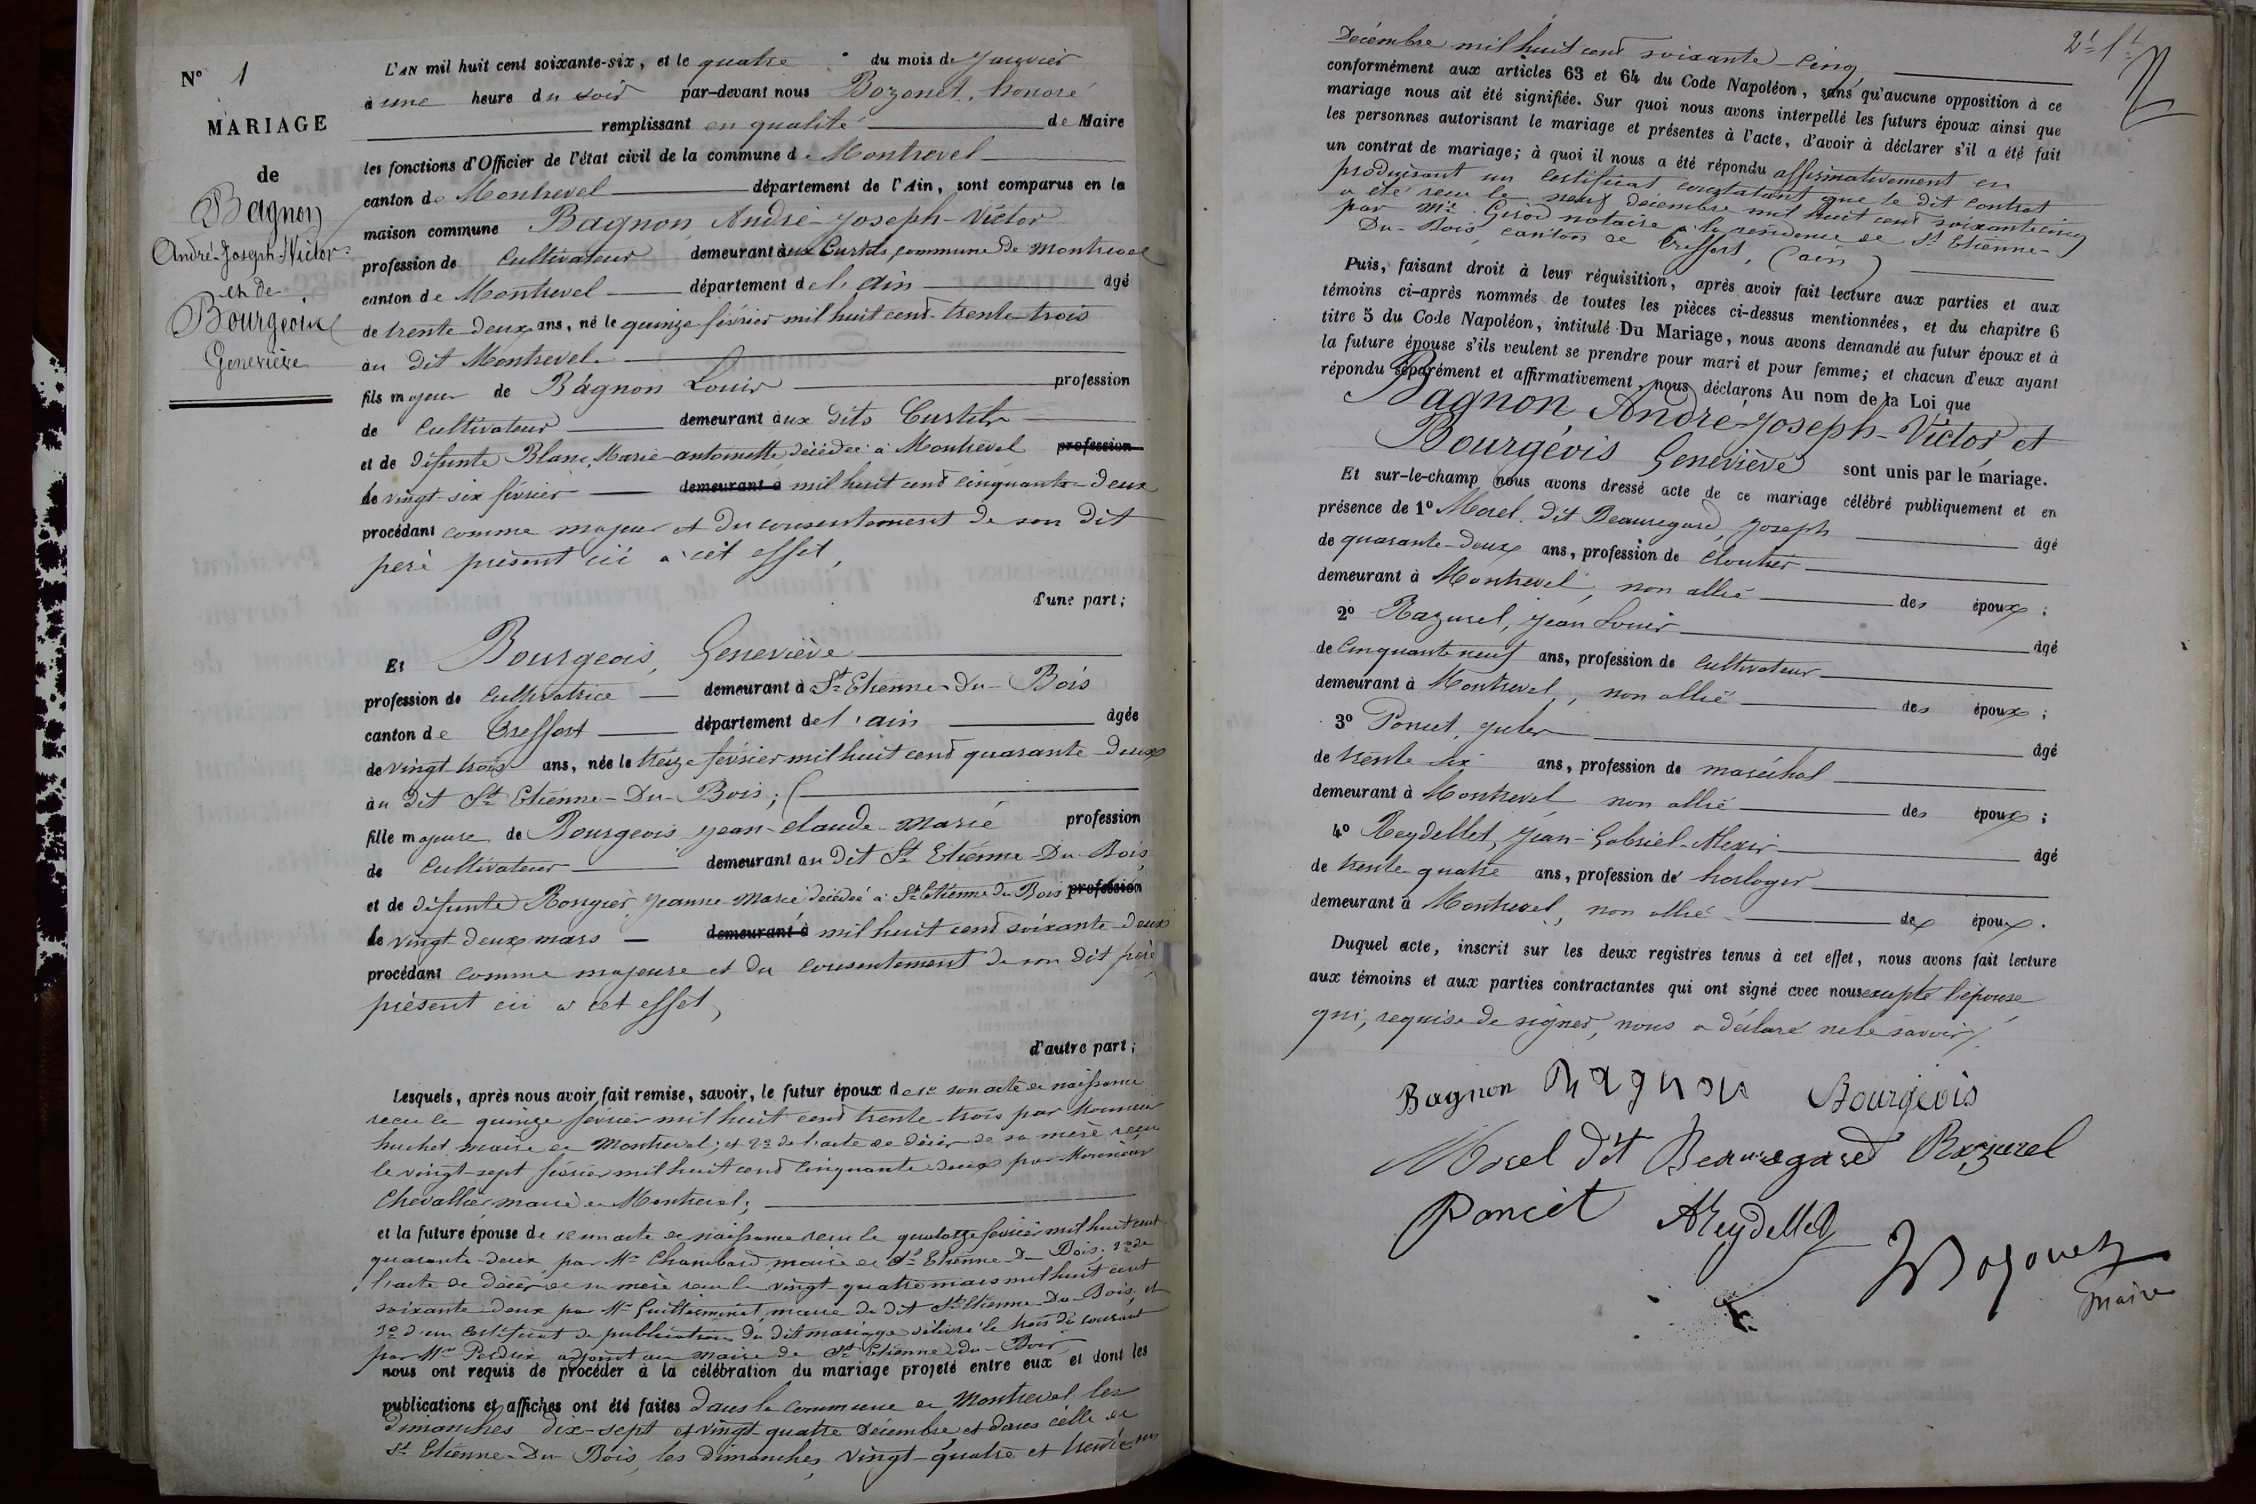 N° 1
MARIAGE
de
Bagnon
André-Joseph-Victor
et de
Bourgeois
Geneviève
L'AN mil huit cent soixante-six, et le quatre du mois de Janvier
à une heure du soir par-devant nous Bozonet, honoré
remplissant en qualité de Maire
les fonctions d'Officier de l'état civil de la commune de Montrevel
canton de Montrevel département de l'Ain, sont comparus en la
maison commune Bagnon André-Joseph-Victor
profession de Cultivateur demeurant aux Curtils, commune de Montrevel
canton de Montrevel département de l'ain âgé
de trente-deux ans, né le quinze février mil huit cent trente-trois
au dit Montrevel
fils majeur de Bagnon Louis profession
de Cultivateur demeurant aux dits Curtils
et de défunte Blanc, Marie-antoinette, décédée à Montrevel profession
le vingt-six février demeurant à mil huit cent cinquante-deux
procédant comme majeur et du consentement de son dit
père présent ici à cet effet,
d'une part;
Et Bourgeois, Geneviève
profession de Cultivatrice demeurant à St Etienne-Du-Bois
canton de Treffort département de l'ain âgée
de vingt-trois ans, née le treize février mil huit cent quarante-deux
au dit St Etienne-Du-Bois;
fille majeure de Bourgeois, Jean-Claude-Marie profession
de Cultivateur demeurant au dit St Etienne-Du-Bois
et de défunte Rongier, Jeanne-Marie décédée à St Etienne-du-Bois profession
le vingt-deux mars demeurant à mil huit cent soixante-deux
procédant comme majeure et du consentement de son dit père
présent ici à cet effet,
d'autre part;
Lesquels, après nous avoir fait remise, savoir, le futur époux de 1° son acte de naissance
reçu le quinze février mil huit cent trente-trois par Monsieur
huchet maire de Montrevel; et 2° de l'acte de décès de sa mère reçu
le vingt-sept février mil huit cent cinquante-deux par Monsieur
Chevallier maire de Montrevel;
et la future épouse de 1° un acte de naissance reçu le quatorze février mil huit cent
quarante-deux par Mr Chambard, maire de St Etienne-Du-Bois. 2° de
l'acte de décès de sa mère reçu le vingt-quatre mars mil huit cent
soixante-deux par Mr Guillerminet, maire du dit St Etienne-Du-Bois, et
3° d'un certificat de publication du dit mariage délivré le trois du courant
par Mr Perdrix adjoint au maire de St Etienne-du-Bois
nous ont requis de procéder à la célébration du mariage projeté entre eux et dont les
publications et affiches ont été faites dans la commune de Montrevel les
dimanches dix-sept et vingt-quatre Décembre, et dans celle de
St Etienne-Du-Bois, les dimanches vingt-quatre et trente un
2e ft
Décembre mil huit cent soixante-cinq,
conformément aux articles 63 et 64 du Code Napoléon, sans qu'aucune opposition à ce
mariage nous ait été signifiée. Sur quoi nous avons interpellé les futurs époux ainsi que
les personnes autorisant le mariage et présentes à l'acte, d'avoir à déclarer s'il a été fait
un contrat de mariage; à quoi il nous a été répondu affirmativement en
produisant un certificat constatant que le dit contrat
a été reçu le neuf décembre mil huit cent soixante-cinq
par Me Girod notaire à la résidence de St Etienne-
Du-Bois, canton de Treffort, (ain)
Puis, faisant droit à leur réquisition, après avoir fait lecture aux parties et aux
témoins ci-après nommés de toutes les pièces ci-dessus mentionnées, et du chapitre 6
titre 5 du Code Napoléon, intitulé Du Mariage, nous avons demandé au futur époux et à
la future épouse s'ils veulent se prendre pour mari et pour femme; et chacun d'eux ayant
répondu séparément et affirmativement, nous déclarons Au nom de la Loi que
Bagnon, André-Joseph-Victor, et
Bourgeois Geneviève sont unis par le mariage.
Et sur-le-champ nous avons dressé acte de ce mariage célébré publiquement et en
présence de 1° Morel dit Beauregard, Joseph âgé
de quarante-deux ans, profession de Cloutier
demeurant à Montrevel, non allié des époux;
2° Razurel, Jean Louis âgé
de Cinquante neuf ans, profession de Cultivateur
demeurant à Montrevel, non allié des époux;
3° Poncet, Jules âgé
de trente six ans, profession de maréchal
demeurant à Montrevel non allié des époux;
4° Reydellet, Jean-Gabriel-Alexis âgé
de trente quatre ans, profession de horloger
demeurant à Montrevel, non allié des époux.
Duquel acte, inscrit sur les deux registres tenus à cet effet, nous avons fait lecture
aux témoins et aux parties contractantes qui ont signé avec nous excepté l'épouse
qui, requise de signer, nous a déclaré ne le savoir.
Bagnon Bagnon Bourgeois
Morel dit Beauregard Razurel
Poncet AReydellet
Bozonet
maire